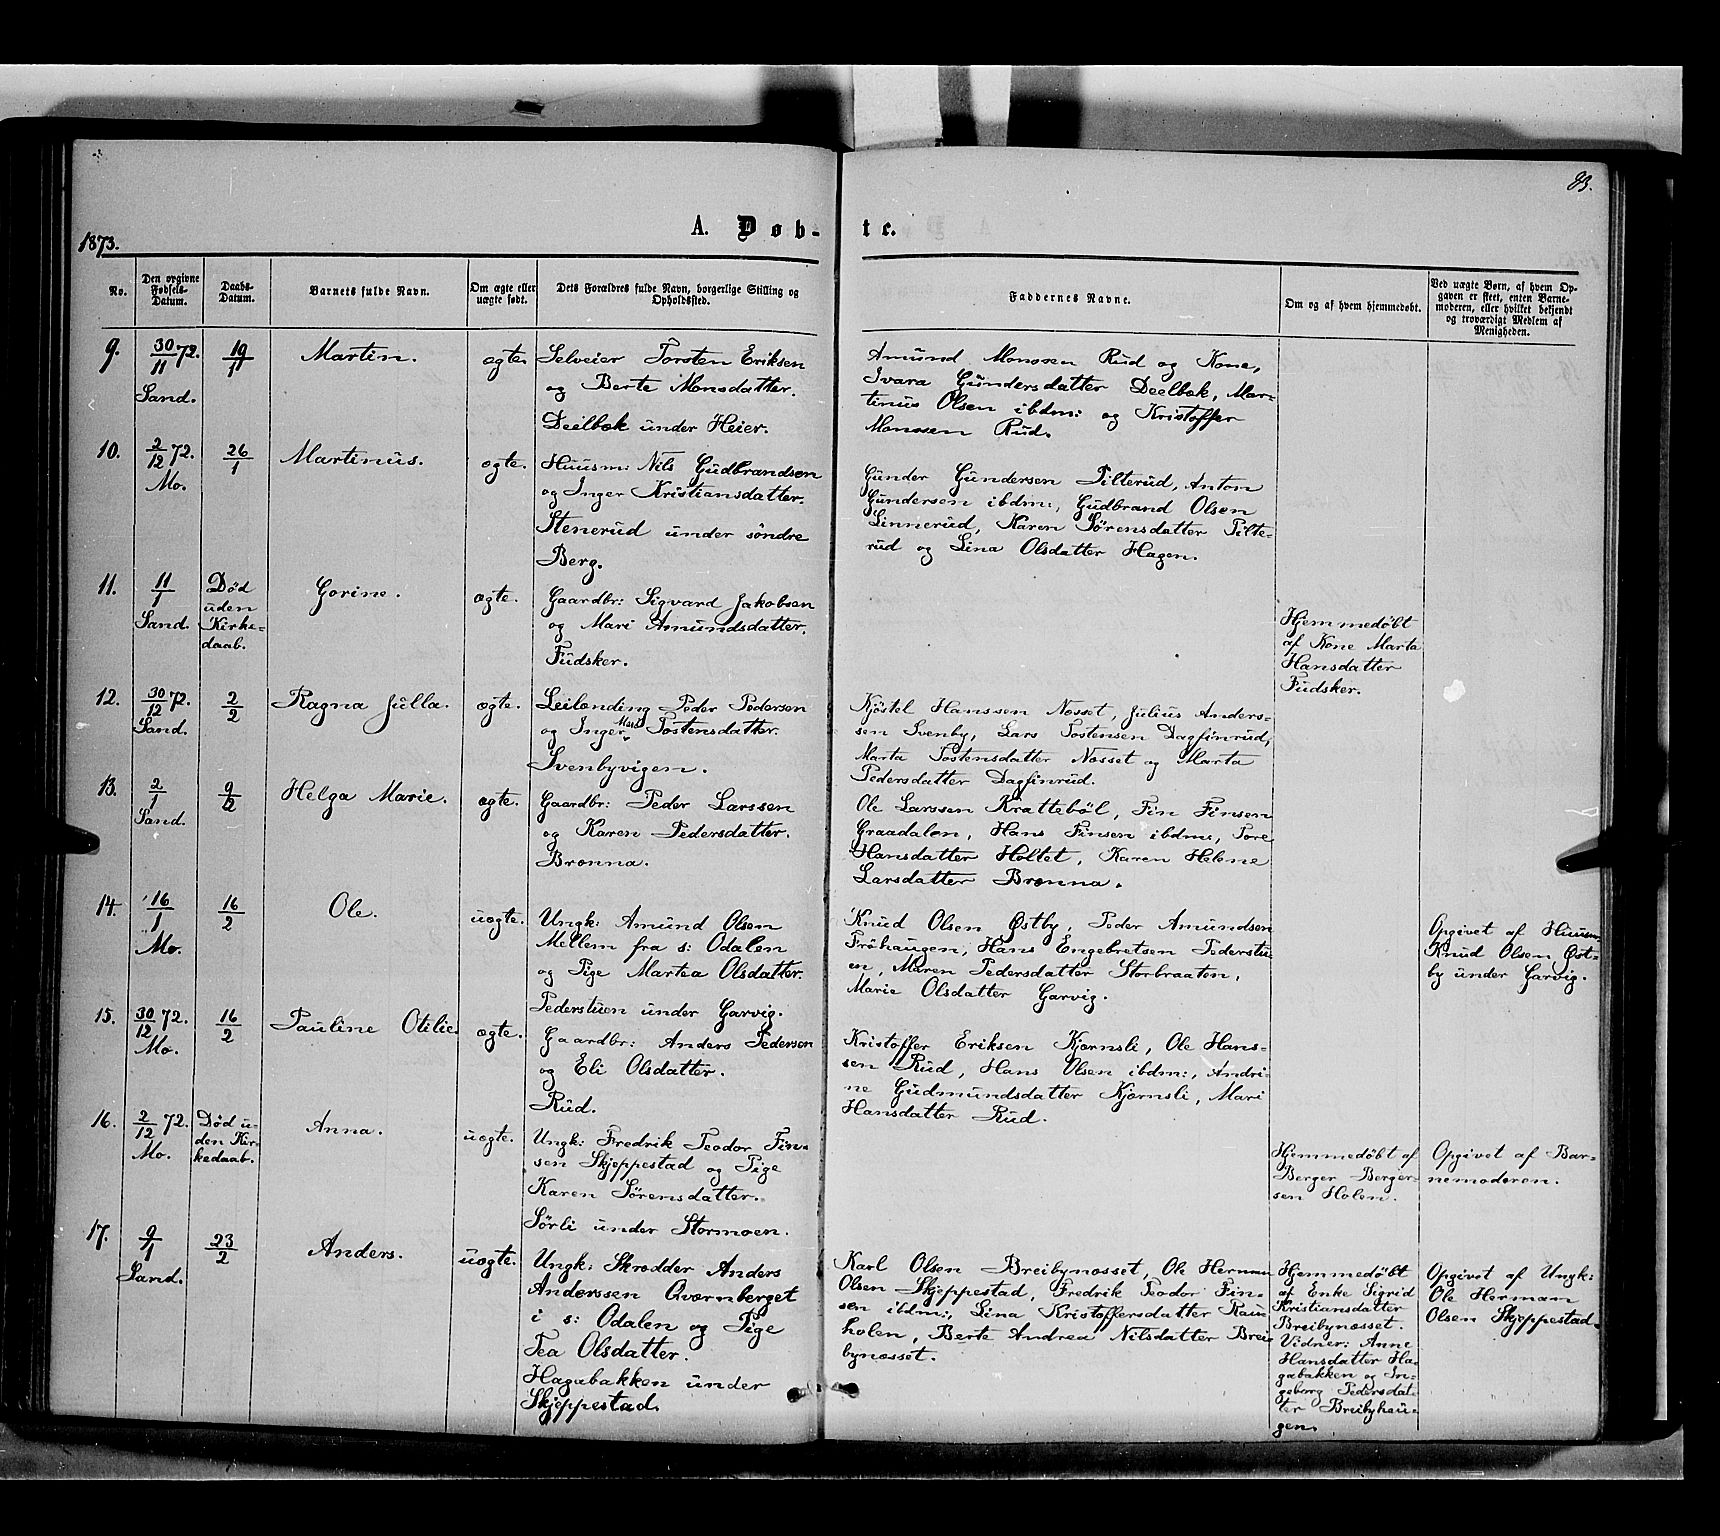 83.
1873.
A. Døb-
te.
No.
Den opgivne Fødsels-Datum.
Daabs-Datum.
Barnets fulde Navn.
Om ægte eller uægte født.
Dets Forældres fulde Navn, borgerlige Stilling og Opholdssted.
Faddernes Navne.
Om og af hvem hjemmedøbt.
Ved uægte Børn, af hvem Opgaven er skeet, enten Barnemoderen, eller hvilket bekjendt og troværdigt Medlem af Menigheden.
9.
30/11 72.
Sand.
19/1
Martin.
ægte.
Selveier Torsten Eriksen
og Berte Monsdatter.
Deilbæk under Heier.
Amund Monssen Rud og Kone,
Ivara Gundersdatter Deelbæk, Mar-
tinus Olsen ibdm: og Kristoffer
Monssen Rud.
10.
2/12 72.
Mo.
26/1
Martinus.
ægte.
Huusm: Nils Gudbrandsen
og Inger Kristiansdatter.
Stenerud under søndre
Berg.
Gunder Gundersen Pilterud, Anton
Gundersen ibdm:, Gudbrand Olsen
Linnerud, Karen Sørensdatter Pilte-
rud og Lina Olsdatter Hagen.
11.
11/1
Sand.
Død
uden
Kirke-
daab.
Gorine.
ægte.
Gaardbr: Sigvard Jakobsen
og Mari Amundsdatter.
Fudsker.
Hjemmedøbt
af Kone Marta
Hansdatter
Fudsker.
12.
30/12 72.
Sand.
2/2
Ragna Julla.
ægte.
Leilænding Peder Pedersen
og Inger Marie Tostensdatter.
Svenbyvigen.
Kjøstel Hanssen Næsset, Julius Anders-
sen Svenby, Lars Tostensen Dagfinrud,
Marta Tostensdatter Næsset og Marta
Pedersdatter Dagfinrud.
13.
2/1
Sand.
9/2
Helga Marie.
ægte.
Gaardbr: Peder Larssen
og Karen Pedersdatter.
Brænna.
Ole Larssen Krattebøl, Fin Finsen
Graadalen, Hans Finsen ibdm:, Tore
Hansdatter Holtet, Karen Helene
Larsdatter Brænna.
14.
16/1
Mo.
16/2
Ole.
uægte.
Ungk: Amund Olsen
Mellem fra s: Odalen
og Pige Martea Olsdatter.
Pederstuen under Garvig.
Knud Olsen Østby, Peder Amundsen
Frøhaugen, Hans Engebretsen Pederstu-
en, Maren Pedersdatter Storbraaten,
Marie Olsdatter Garvig.
Opgivet af Huusm:
Knud Olsen Øst-
by under Garvig.
15.
30/12 72.
Mo.
16/2
Pauline Otilie.
ægte.
Gaardbr: Anders Pedersen
og Eli Olsdatter.
Rud.
Kristoffer Eriksen Kjærnsli, Ole Hans-
sen Rud, Hans Olsen ibdm:, Andri-
ne Gudmundsdatter Kjærnsli, Mari
Hansdatter Rud.
16.
2/12 72.
Mo.
Død u-
den Kir-
kedaab.
Anna.
uægte.
Ungk: Fredrik Teodor Fin-
sen Skjeppestad og Pige
Karen Sørensdatter.
Sørli under Stormoen.
Hjemmedøbt af
Berger Berger-
sen Holen.
Opgivet af Bar-
nemoderen.
17.
9/1
Sand.
23/2
Anders.
uægte.
Ungk: Skrædder Anders
Anderssen Qværnberget
i s: Odalen og Pige
Tea Olsdatter.
Hagabakken under
Skjeppestad.
Karl Olsen Breibynæsset, Ole Herman
Olsen Skjeppestad, Fredrik Teodor Fin-
sen ibdm:, Lina Kristoffersdatter Rau-
holen, Berte Andrea Nilsdatter Brei-
bynæsset.
Hjemmedøbt
af Enke Sigrid
Kristiansdatter
Breibynæsset.
Vidner: Anne
Hansdatter Ha-
gabakken og In-
geborg Pedersdat-
ter Breibyhau-
gen.
Opgivet af Ungk:
Ole Herman
Olsen Skjeppestad.